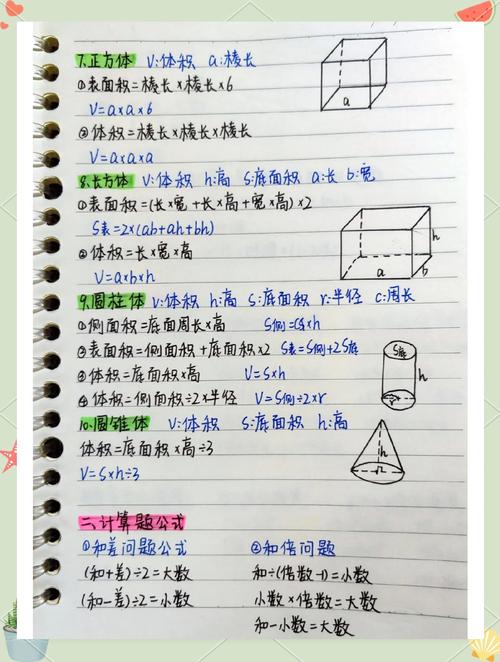 7.正方体 V:体积 a:棱长
①表面积=棱长×棱长×6
V=a×a×6
②体积=棱长×棱长×棱长
V=a×a×a
a
8.长方体 V:体积 h:高 S:底面积 a:长 b:宽
①表面积=(长×宽+长×高+宽×高)×2
S表=2×(ab+ah+bh)
②体积=长×宽×高
V=a×b×h
h
a
b
9.圆柱体 V:体积 h:高 S:底面积 r:半径 C:周长
①侧面积=底面周长×高 S侧=C底×h
②表面积=侧面积+底面积×2 S表=S侧+2S底
③体积=底面积×高 V=S×h
④体积=侧面积÷2×半径 V=S侧÷2×r
S底
h
10.圆锥体 V:体积 S:底面积 h:高
体积=底面积×高÷3
V=S×h÷3
h
r
二.计算题公式
①和差问题公式 ②和倍问题
(和+差)÷2=大数 和÷(倍数-1)=小数
(和-差)÷2=小数 小数×倍数=大数
和-小数=大数